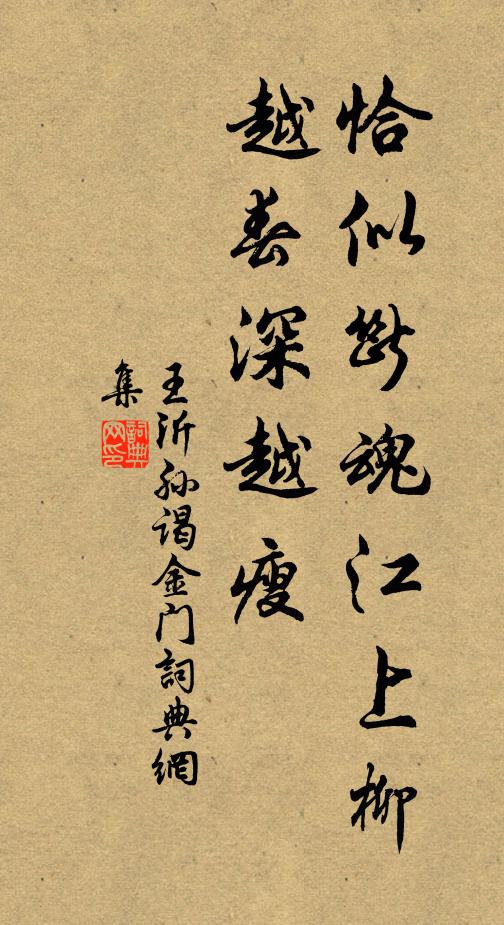 恰似断魂江上柳
越春深越瘦
王沂孙谒金门詞典網
集
詞典
网印